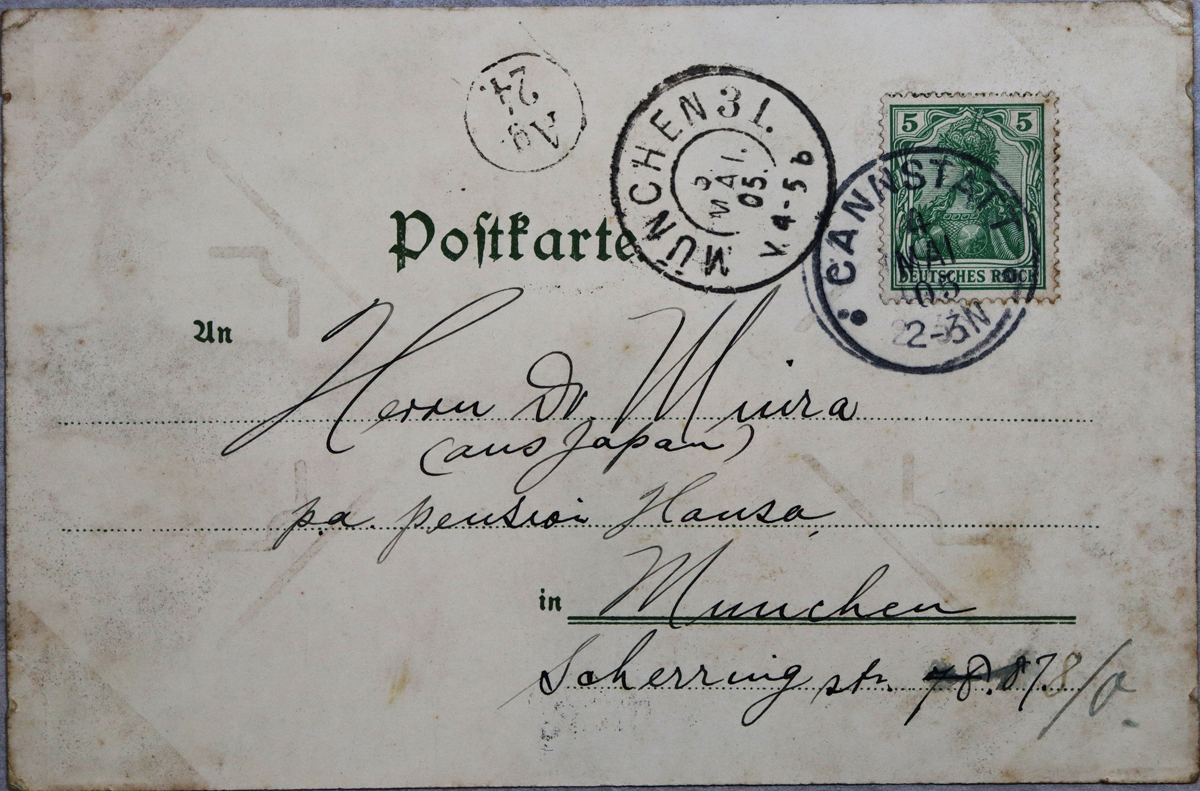 Ag.
24.
MÜNCHEN 31.
MAI.
05.
V. 4-5 b
5 5
DEUTSCHES REICH
CANNSTATT
MAI
05
2-3N
Postkarte
An
Herrn Dr. Miura
(aus Japan)
pa. pension Hansa,
in Munchen
Scherring str. 87.